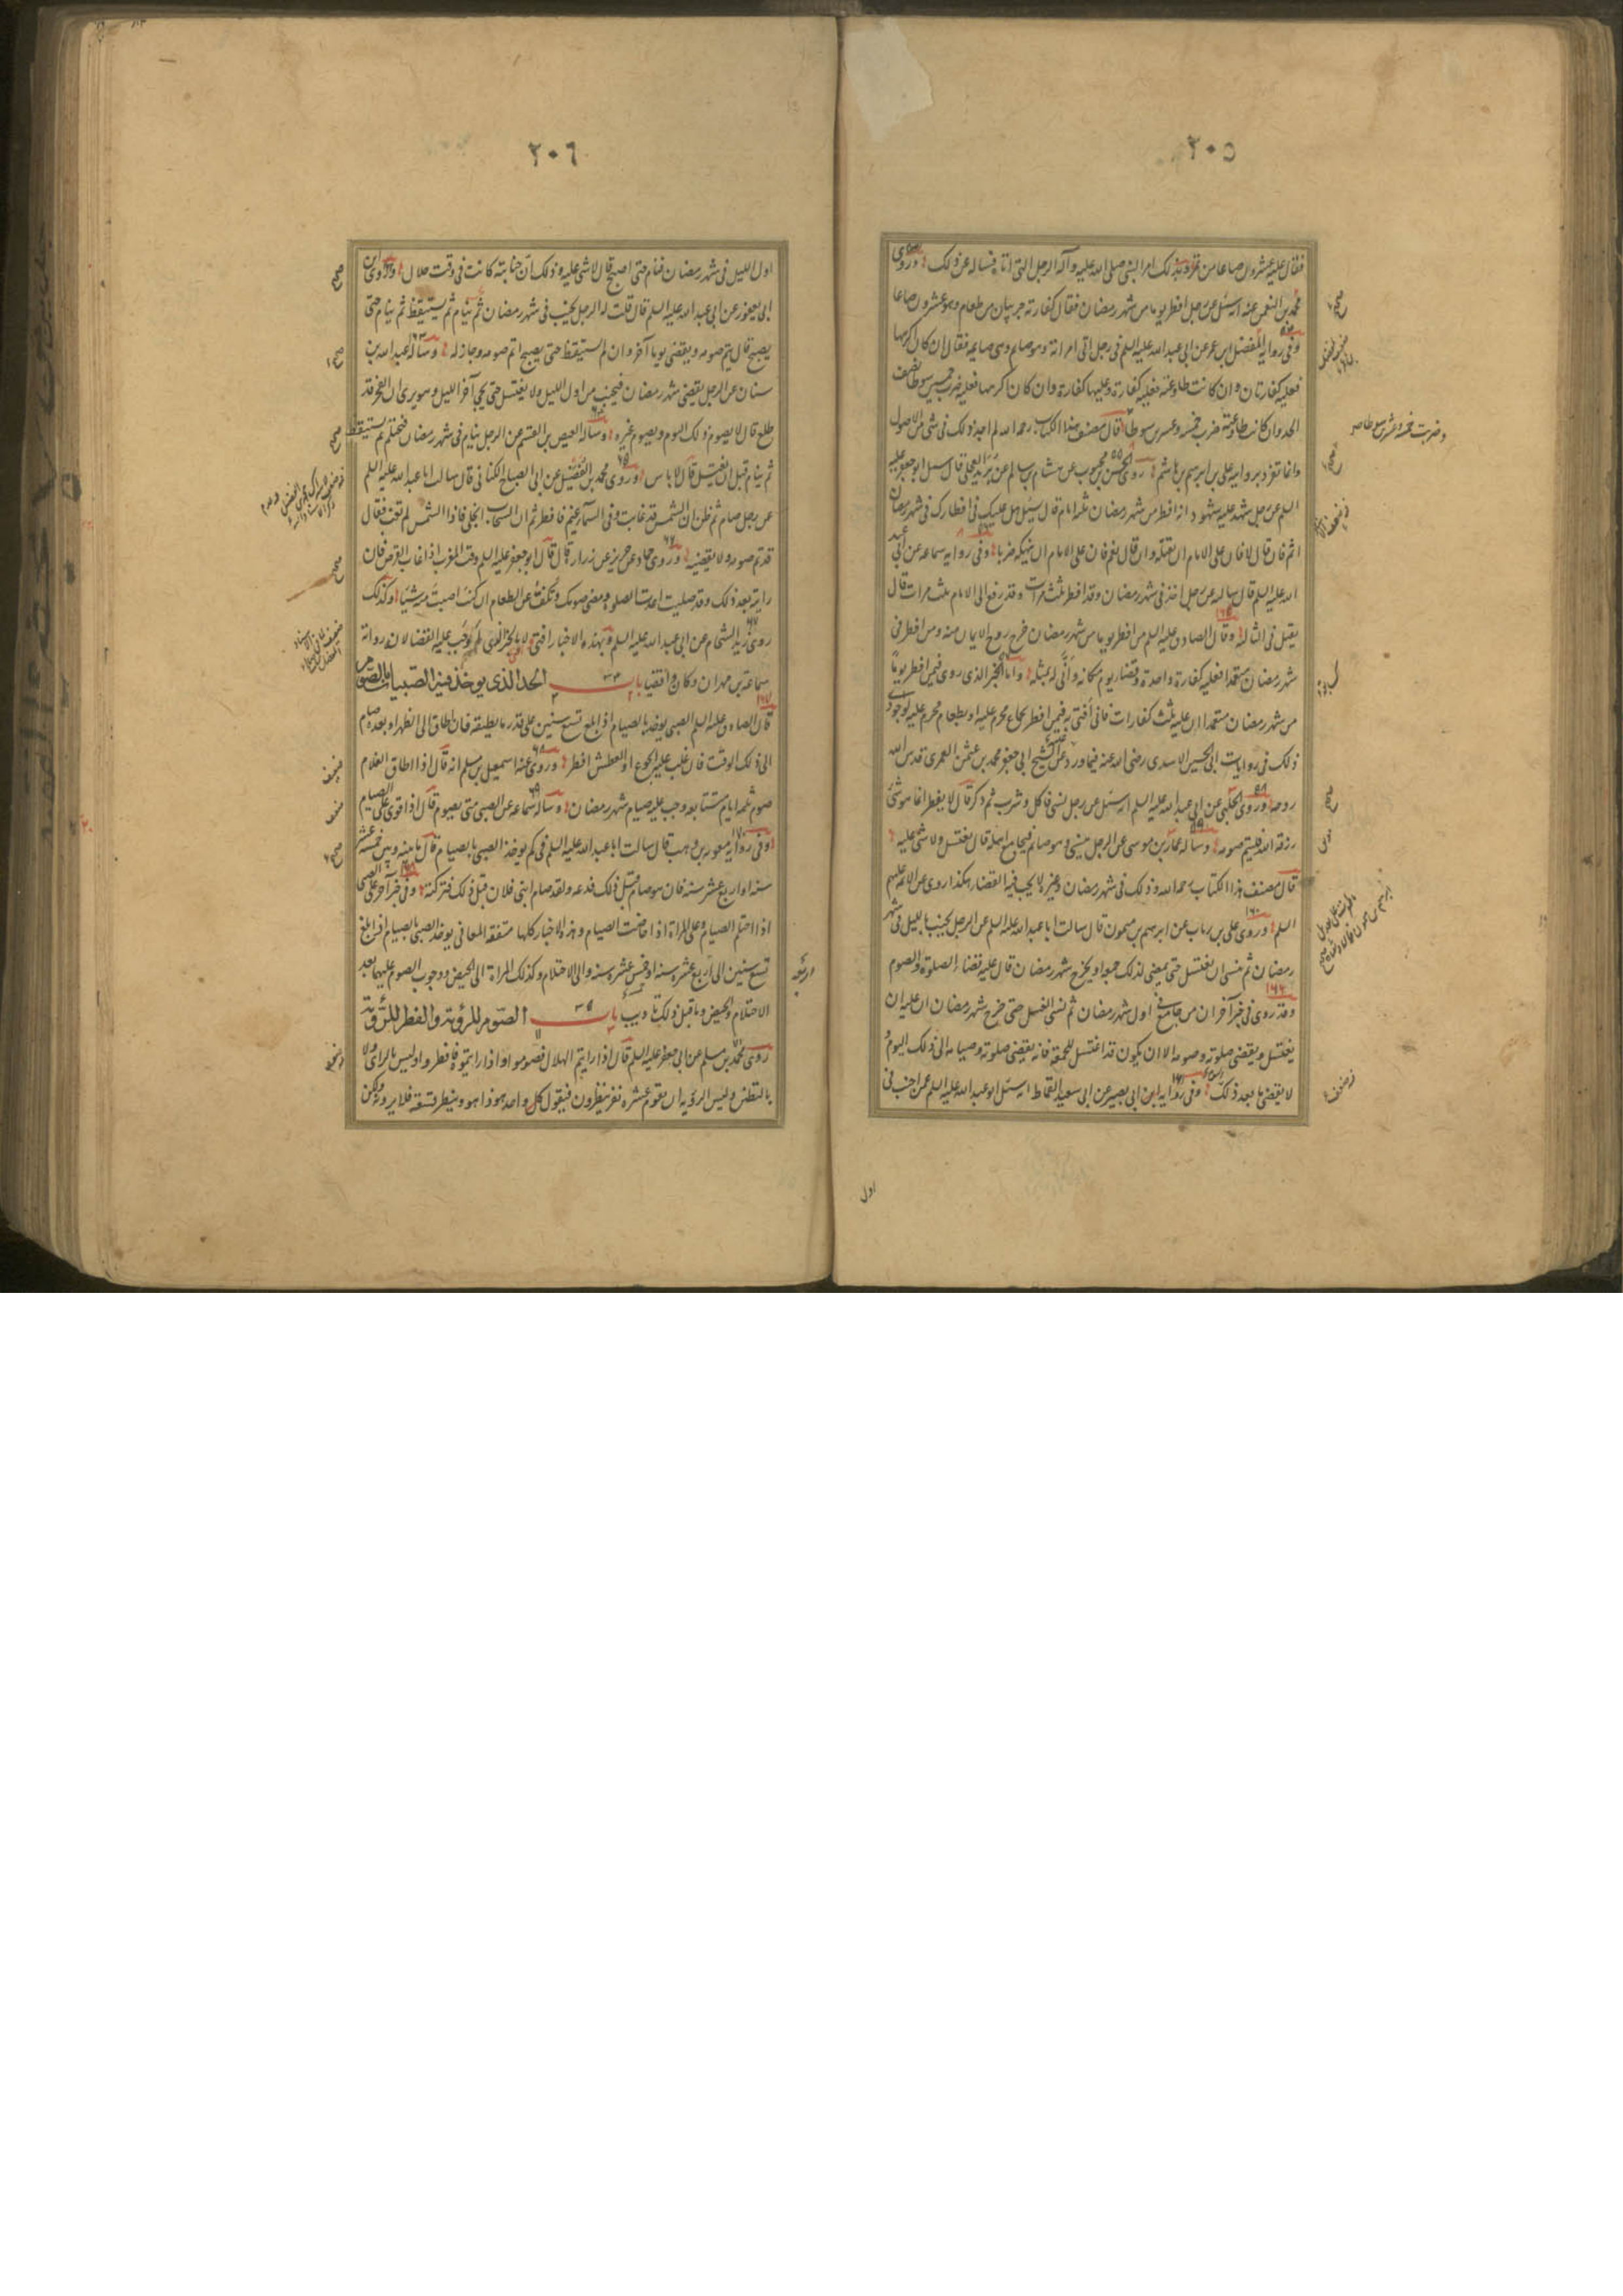 ٢٠٥
فقال عليه عشرون صاعا من تمر وبذلك امر النبي صلى الله عليه وآله الرجل الذي اتاه فسأله عن ذلك وروى
محمد بن النعمن عنه انه سئل عن رجل افطر يوما من شهر رمضان فقال كفارته جريبان من طعام وهو عشرون صاعا
وفي رواية المفضل بن عمر عن ابي عبد الله عليه السلم في رجل اتى امراته وهو صايم وهي صايمه فقال ان كان اكرهها
فعليه كفارتان وان كانت طاوعته فعليه كفارة وعليها كفارة وان كان اكرهها فعليه ضرب خمسين سوطا نصف
الحد وان كانت طاوعته ضرب خمسه وعشرين سوطا قال مصنف هذا الكتاب رحمه الله لم اجد ذلك في شئ من الاصول
وانما تفرد بروايه علي بن ابرهيم بن هاشم روى الحسن بن محبوب عن هشام بن سالم عن بريد العجلي قال سئل ابو جعفر عليه
السلم عن رجل شهد عليه شهود انه افطر من شهر رمضان ثلثه ايام قال يسئل هل عليك في افطارك في شهر رمضان
اثم فان قال لا فان على الامام ان يقتله وان قال نعم فان على الامام ان ينهكه ضربا وفي روايه سماعه عن ابي عبد
الله عليه السلم قال سالته عن رجل اخذ في شهر رمضان وقد افطر ثلث مرات وقد رفع الى الامام ثلث مرات قال
يقتل في الثالثه وقال الصادق عليه السلم من افطر يوما من شهر رمضان خرج روح الايمان منه ومن افطر في
شهر رمضان متعمدا فعليه كفارة واحدة وقضاء يوم مكانه وانى له بمثله واما الخبر الذي روى فيمن افطر يوما
من شهر رمضان متعمدا ان عليه ثلث كفارات فاني افتي به فيمن افطر بجماع محرم عليه او بطعام محرم عليه لوجود
ذلك في روايات ابي الحسين الاسدي رضي الله عنه فيما ورد عليه من الشيخ ابي جعفر محمد بن عثمن العمري قدس الله
روحه وروى الحلبي عن ابي عبد الله عليه السلم انه سئل عن رجل نسي فاكل وشرب ثم ذكر قال لا يفطر انما هو شئ
رزقه الله فليتم صومه وساله عمار بن موسى عن الرجل ينسى وهو صائم فيجامع اهله قال يغتسل ولا شئ عليه
قال مصنف هذا الكتاب رحمه الله وذلك في شهر رمضان وغيره لا يجب فيه القضاء هكذا روى عن الائمه عليهم
السلم وروى علي بن رياب عن ابرهيم بن ميمون قال سالت ابا عبد الله عليه السلم عن الرجل يجنب بالليل في شهر
رمضان ثم ينسى ان يغتسل حتى يمضى لذلك جمعه او يخرج شهر رمضان قال عليه قضاء الصلوة والصوم
وقد روى في خبر آخر ان من جامع في اول شهر رمضان ثم نسى الغسل حتى خرج شهر رمضان ان عليه ان
يغتسل ويقضى صلوته وصومه الا ان يكون قد اغتسل للجمعة فانه يقضى صلوته وصيامه الى ذلك اليوم و
لا يقضى ما بعد ذلك وفي روايه ابن ابي بصير عن ابي سعيد القماط انه سئل ابو عبد الله عليه السلم عمن اجنب في
اول
٢٠٦
اول الليل في شهر رمضان فنام حتى اصبح قال لا شئ عليه وذلك ان جنابته كانت في وقت حلال وروى ابن
ابي يعفور عن ابي عبد الله عليه السلم قال قلت له الرجل يجنب في شهر رمضان ثم ينام ثم يستيقظ ثم ينام حتى
يصبح قال يتم صومه ويقضى يوما آخر وان لم يستيقظ حتى يصبح اتم صومه وجاز له وساله عبد الله بن
سنان عن الرجل يقضى شهر رمضان فيجنب من اول الليل ولا يغتسل حتى يجئ آخر الليل وهو يرى ان الفجر قد
طلع قال لا يصوم ذلك اليوم ويصوم غيره وساله العيص بن القسم عن الرجل ينام في شهر رمضان فيحتلم ثم يستيقظ
ثم ينام قبل ان يغتسل قال لا باس وروى محمد بن الفضيل عن ابي الصباح الكناني قال سالت ابا عبد الله عليه السلم
عن رجل صام ثم ظن ان الشمس قد غابت وفي السماء غيم فافطر ثم ان السحاب انجلى فاذا الشمس لم تغب فقال
قد تم صومه ولا يقضيه وروى حماد عن حريز عن زرارة قال قال ابو جعفر عليه السلم وقت المغرب اذا غاب القرص فان
رايته بعد ذلك وقد صليت اعدت الصلوة ومضى صومك وتكف عن الطعام ان كنت اصبت منه شيئا وكذلك
روى زيد الشحام عن ابي عبد الله عليه السلم وبهذه الاخبار افتي ولا افتي بالخبر الذي يوجب عليه القضا لانه رواية
سماعة بن مهران وكان واقفيا باب الحد الذي يوخذ فيه الصبيان بالصوم
قال الصادق عليه السلم الصبي يوخذ بالصيام اذا بلغ تسع سنين على قدر ما يطيقه فان اطاق الى الظهر او بعده صام
الى ذلك الوقت فان غلب عليه الجوع او العطش افطر وروى عنه اسمعيل بن مسلم انه قال اذا اطاق الغلام
صوم ثلثه ايام متتابعه وجب عليه صيام شهر رمضان وساله سماعه عن الصبي متى يصوم قال اذا قوى على الصيام
وفي روايه معويه بن وهب قال سالت ابا عبد الله عليه السلم في كم يوخذ الصبي بالصيام قال ما بينه وبين خمس عشره
سنه او اربع عشر سنه فان هو صام قبل ذلك فدعه ولقد صام ابني فلان قبل ذلك فتركته وفي خبر آخر على الصبي
اذا احتلم الصيام وعلى المراة اذا حاضت الصيام وهذه الاخبار كلها متفقه المعاني يوخذ الصبي بالصيام اذا بلغ
تسع سنين الى اربع عشره سنه او خمس عشره سنه والى الاحتلام وكذلك المراة الى الحيض ووجوب الصوم عليهما بعد
الاحتلام والحيض وما قبل ذلك تاديب باب الصوم للرؤية والفطر للرؤية
روى محمد بن مسلم عن ابي جعفر عليه السلم قال اذا رايتم الهلال فصوموا واذا رايتموه فافطروا وليس بالراي ولا
بالتظني وليس الرؤيه ان يقوم عشره نفر ينظرون فيقول كل واحد هو ذا هو وينظر تسعة فلا يرونه ولكن